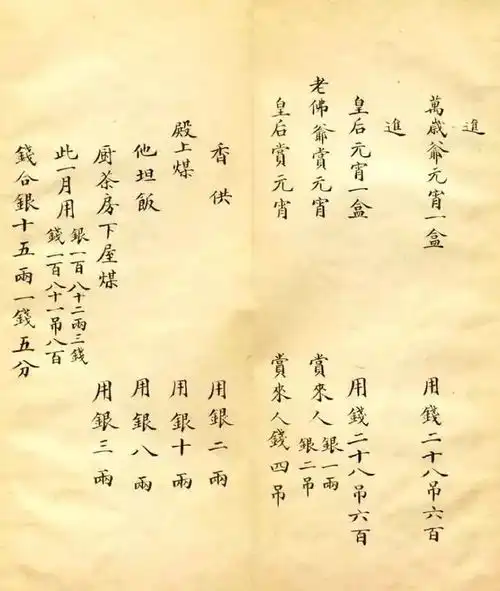 進
萬歲爺元宵一盒 用錢二十八吊六百
進
皇后元宵一盒 用錢二十八吊六百
老佛爺賞元宵 賞來人 銀一兩 銀二吊
皇后賞元宵 賞來人錢四吊
香供 用銀二兩
殿上煤 用銀十兩
他坦飯 用銀八兩
厨茶房下屋煤 用銀三兩
此一月用 銀一百八十二兩三錢 錢一百八十一吊八百
錢合銀十五兩一錢五分